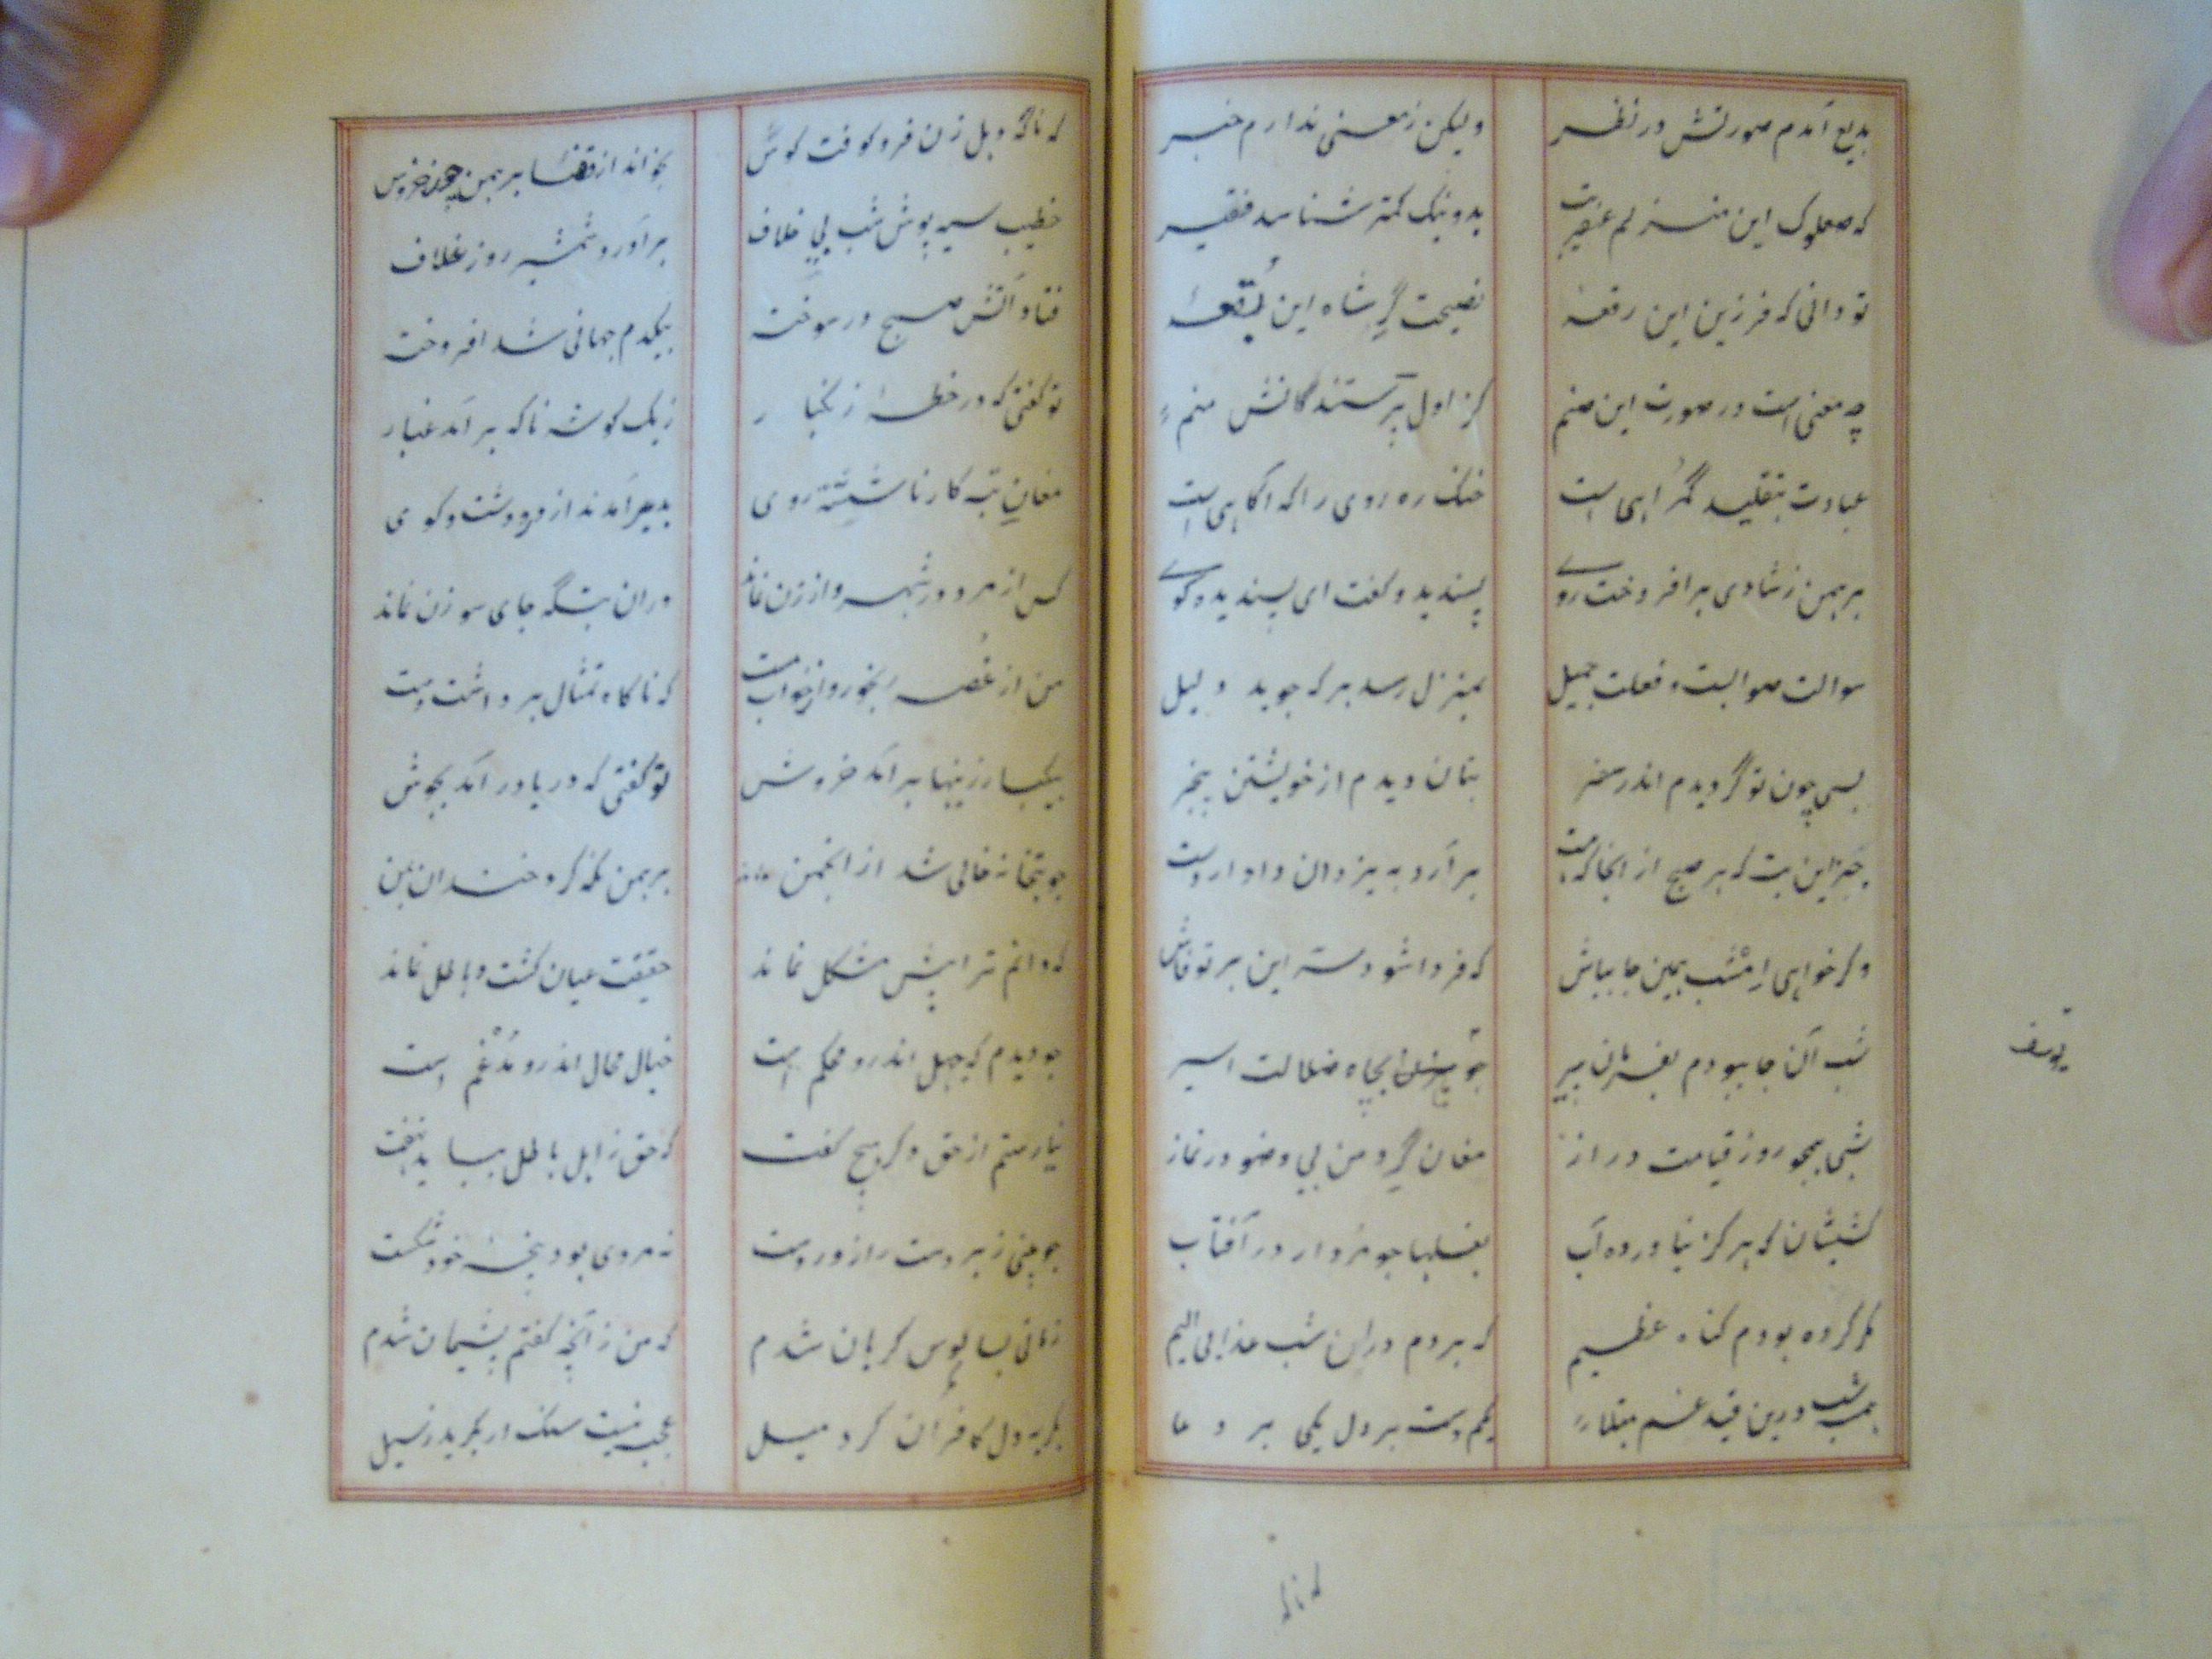 بدیع آمدم صورتش در نظر ولیکن ز معنی ندارم خبر
که صعلوک این منزلم عنقریب بد و نیک کمتر شناسد فقیر
تو دانی که فرزین این رقعهٔ نصیحت گر شاه این بقعهٔ
چه معنی است در صورت این صنم کز اول پرستندگانش منم
عبادت بتقلید گمراهی است خنک ره روی را که آگاهی است
برهمن ز شادی برافروخت روی پسندید و گفت ای پسندیده گوی
سوالت صوابست و فعلت جمیل بمنزل رسد هر که جوید دلیل
بسی چون تو گردیدم اندر سفر بتان دیدم از خویشتن بیخبر
جز این بت که هر صبح از اینجا که هست برآرد به یزدان دادار دست
وگر خواهی امشب همین جا بباش که فردا شود سر این بر تو فاش
شب آن جا ببودم بفرمان پیر چو بیژن بچاه ضلالت اسیر
یوسف
شبی همچو روز قیامت دراز مغان گرد من بی وضو در نماز
کشیشان که هرگز نیاورده آب بغلها چو مردار در آفتاب
مگر کرده بودم گناه عظیم که بردم دران شب عذابی الیم
همه شب درین قید غم مبتلا یکم دست بر دل یکی بر دعا
که ناگه
که ناگه دهل زن فرو کوفت کوس بخواند از قضا برهمن چون خروس
خطیب سیه پوش شب بی خلاف برآورد شمشیر روز غلاف
فتاد آتش صبح در سوخت بیکدم جهانی شد افروخت
تو گفتی که در خطهٔ زنگبار ز یک گوشه ناگه برآمد غبار
مغان تبه کار ناشسته روی بدیر آمدند از در و دشت و کوی
کس از مرد در شهر و از زن نماند دران بتگه جای سوزن نماند
من از غصه رنجور و از خواب مست که ناگاه تمثال برداشت دست
بیکبار زینها برآمد خروش تو گفتی که دریا درآمد بجوش
چو بتخانه خالی شد از انجمن برهمن نگه کرد خندان بمن
که دانم ترا پیش مشکل نماند حقیقت عیان گشت و باطل نماند
چو دیدم که جهل اندرو محکم است خیال محال اندرو مدغم است
نیارستم از حق دگر هیچ گفت که حق ز اهل باطل بباید نهفت
چو بینی زبردست را زور دست نه مردی بود پنجهٔ خود شکست
زمانی بسالوس گریان شدم که من ز آنچه گفتم پشیمان شدم
بگریه دل کافران کرد میل عجب نیست سنگ ار بگردد ز سیل